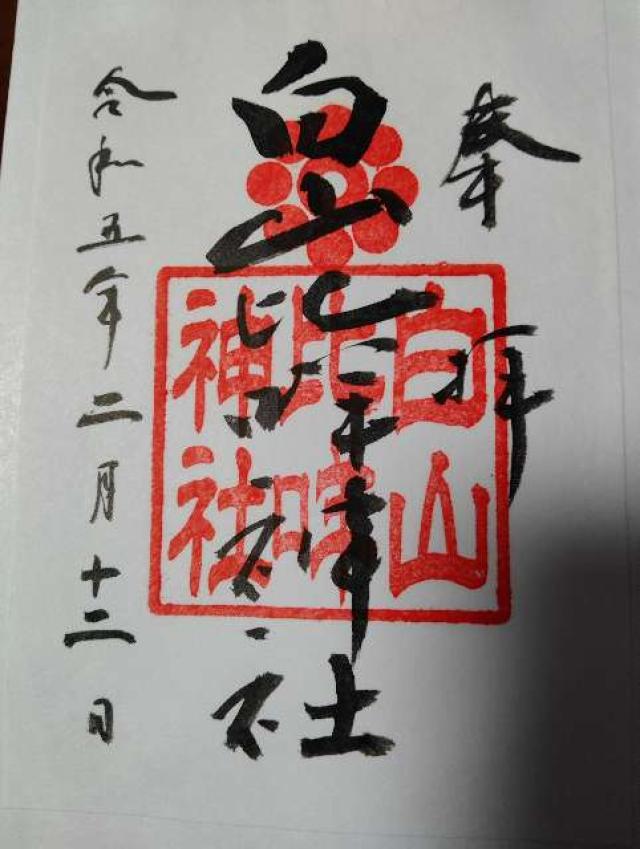 奉拝
白山比咩神社
白山
比咩
神社
令和五年二月十二日